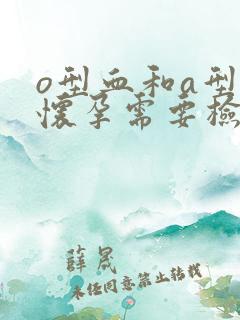 o型血和a型
懷孕需要檢
薛晟
未经同意禁止转载